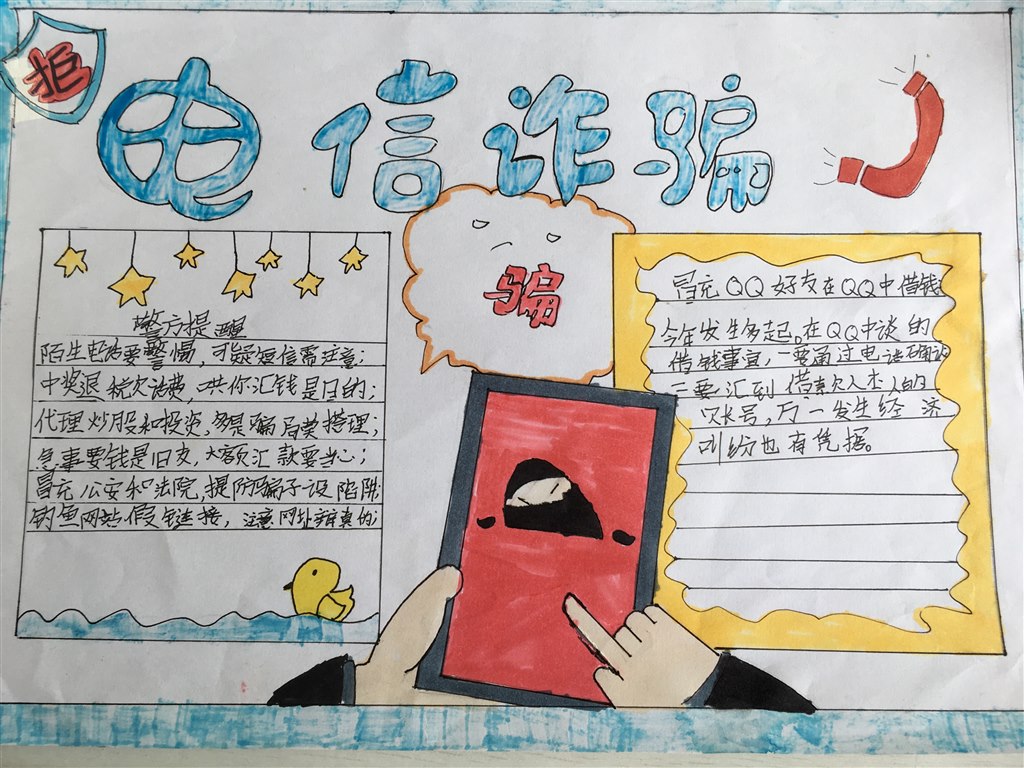 拒
电信诈骗
骗
警方提醒
陌生电话要警惕，可疑短信需注意；
中奖退税欠话费，哄你汇钱是目的；
代理炒股和投资，多是骗局莫搭理；
急事要钱是旧友，大额汇款要当心；
冒充公安和法院，提防骗子设陷阱
钓鱼网站假链接，注意网址辨真的；
冒充QQ好友在QQ中借钱
今年发生多起。在QQ中谈的
借钱事宜，一要通过电话确认
二要汇到借款人本人的
账号，万一发生经济
纠纷也有凭据。